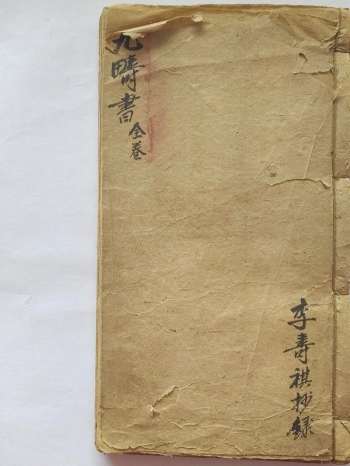 九疇書全卷
李壽祺抄錄